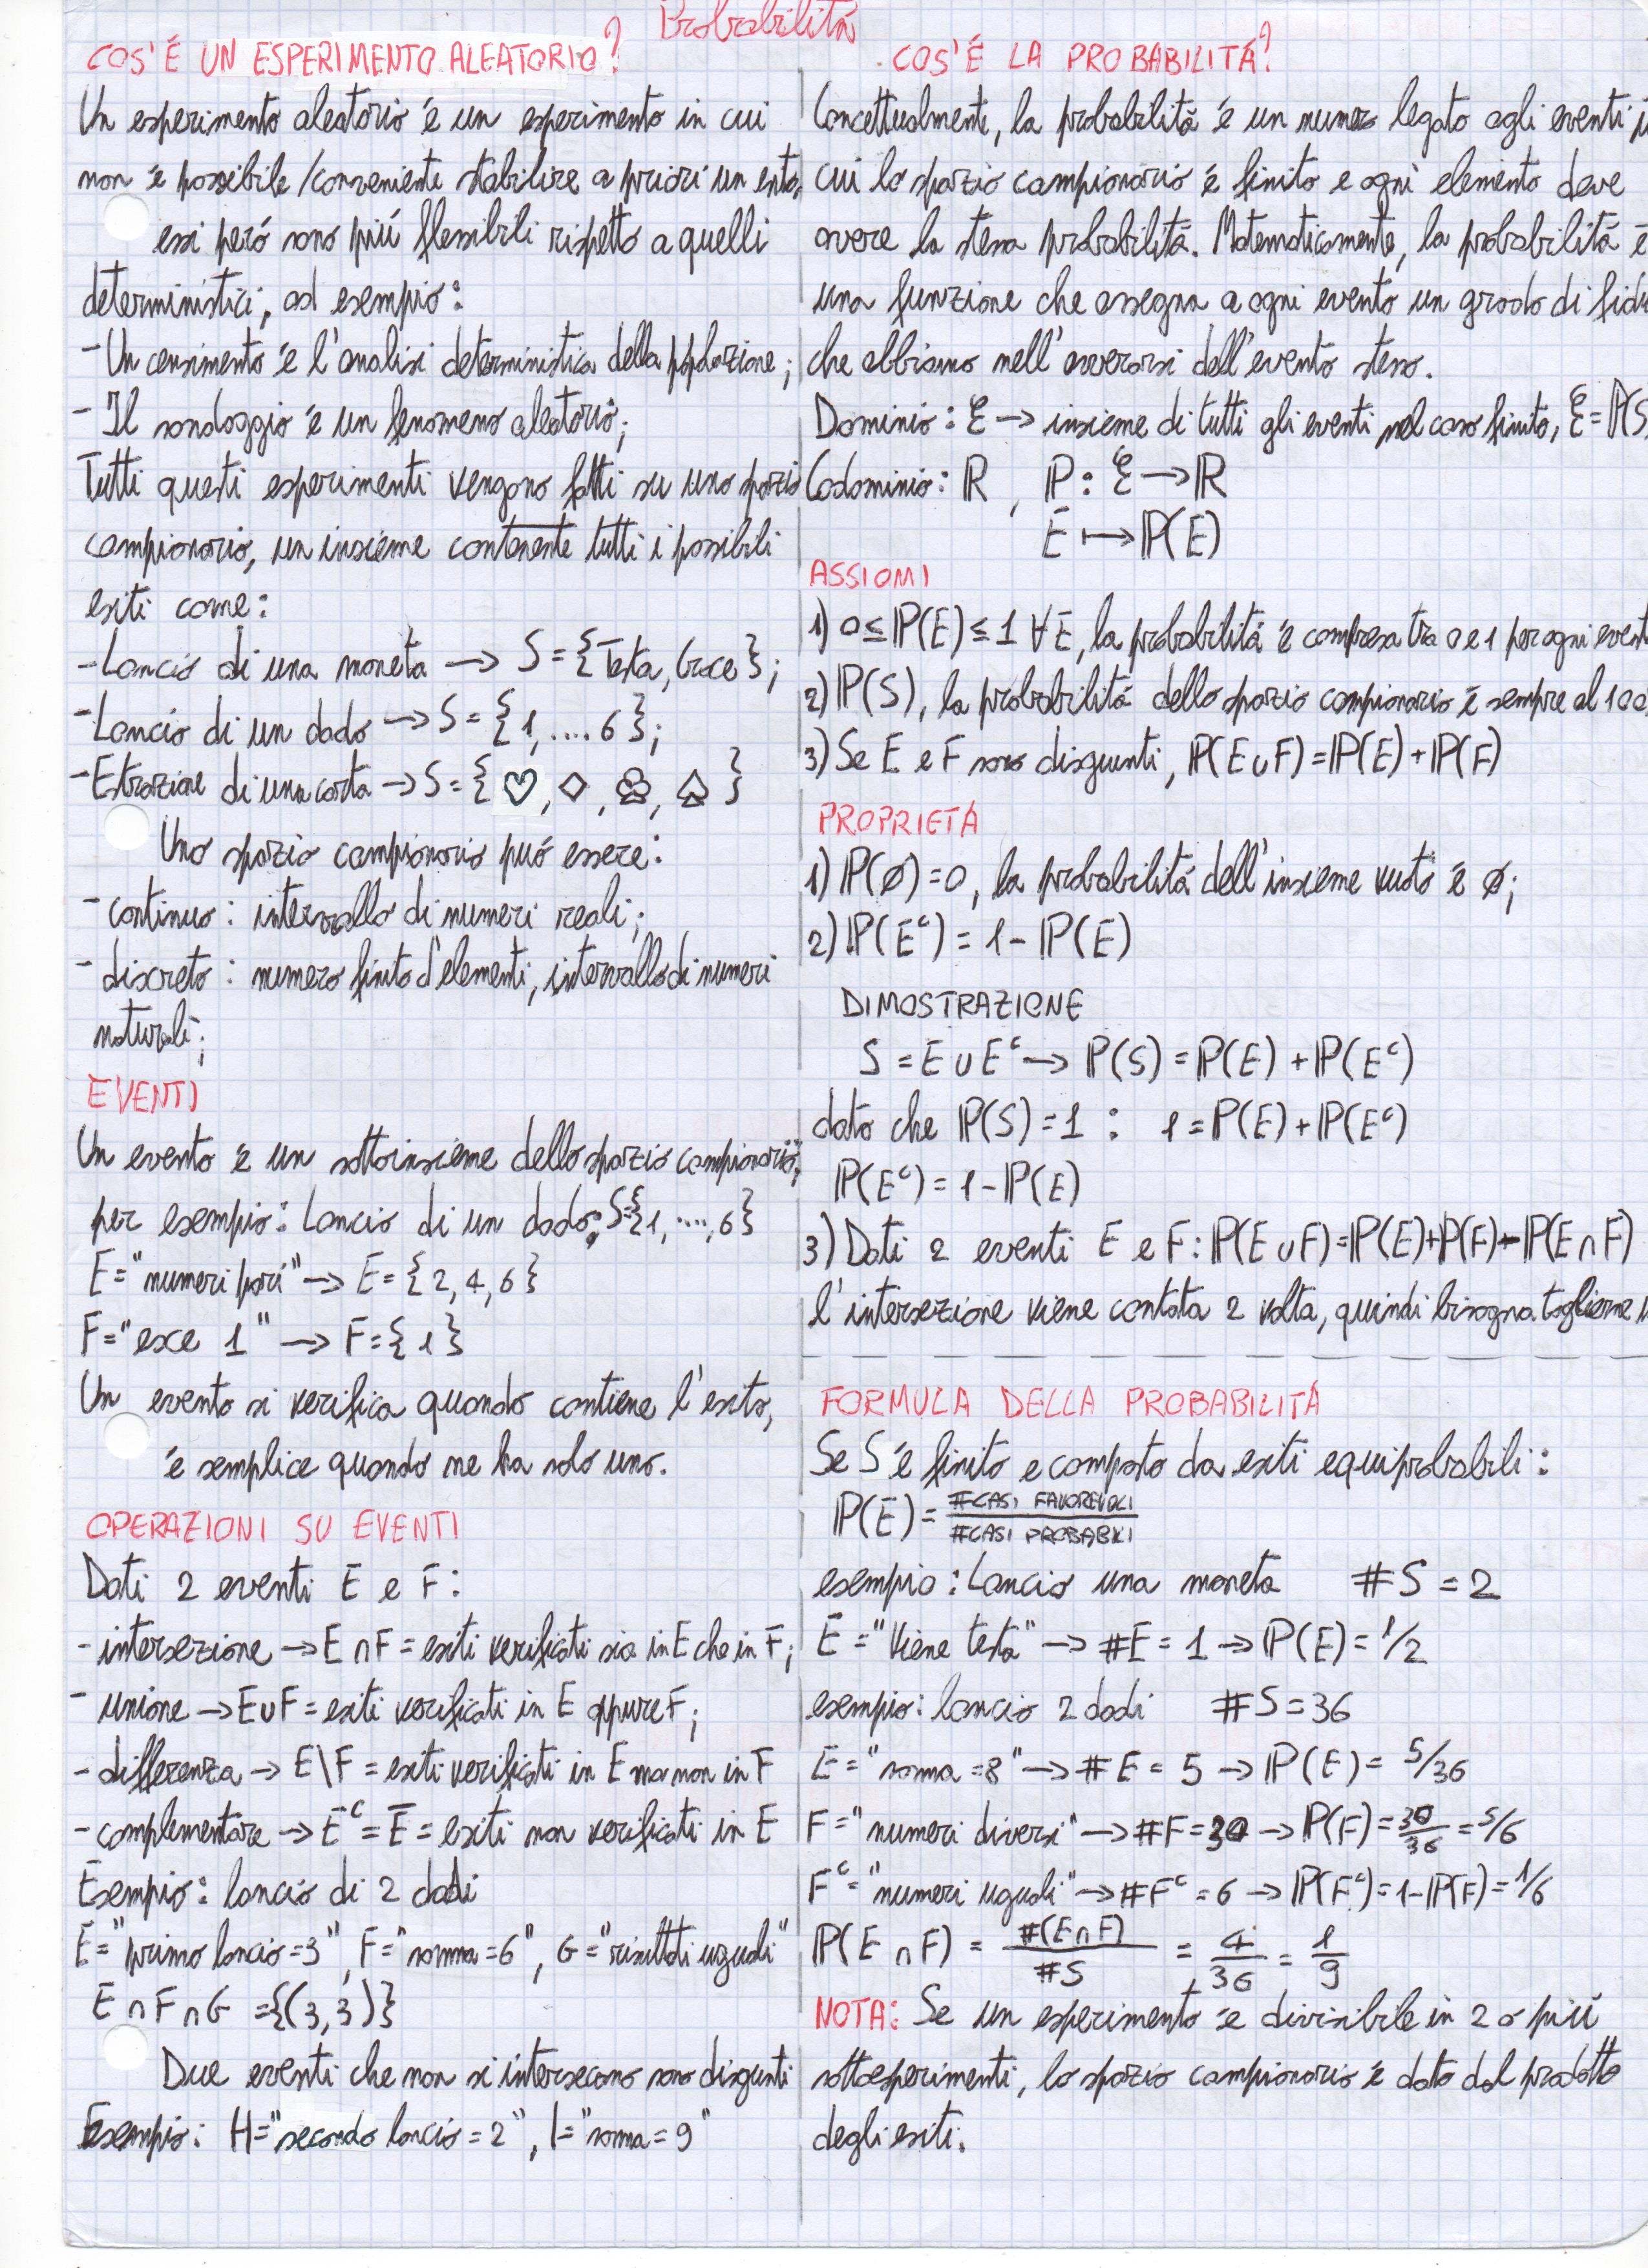 Probabilitá
COS'É UN ESPERIMENTO ALEATORIO?
Un esperimento aleatorio é un esperimento in cui
non é possibile/conveniente stabilire a priori un esito,
essi peró sono piú flessibili rispetto a quelli
deterministici, ad esempio:
- Un censimento é l'analisi deterministica della popolazione;
- Il sondaggio é un fenomeno aleatorio;
Tutti questi esperimenti vengono fatti su uno spazio
campionario, un insieme contenente tutti i possibili
esiti come:
- Lancio di una moneta → S = {Testa, Croce};
- Lancio di un dado → S = {1, .... 6};
- Estrazione di una carta → S = {♡, ◇, ♧, ♤}
Uno spazio campionario puó essere:
- continuo: intervallo di numeri reali;
- discreto: numero finito d'elementi, intervallo di numeri
naturali;
EVENTI
Un evento é un sottoinsieme dello spazio campionario,
per esempio: Lancio di un dado, S={1, ...., 6}
E="numeri pari" → E = {2, 4, 6}
F="esce 1" → F={1}
Un evento si verifica quando contiene l'esito,
é semplice quando ne ha solo uno.
OPERAZIONI SU EVENTI
Dati 2 eventi E e F:
- intersezione → E ∩ F = esiti verificati sia in E che in F;
- unione → E∪F = esiti verificati in E oppure F;
- differenza → E\F = esiti verificati in E ma non in F
- complementare → Eᶜ = E̅ = esiti non verificati in E
Esempio: lancio di 2 dadi
E="primo lancio=3", F="somma=6", G="risultati uguali"
E ∩ F ∩ G = {(3,3)}
Due eventi che non si intersecano sono disgiunti
Esempio: H="secondo lancio=2", I="somma=9"
COS'É LA PROBABILITÁ?
Concettualmente, la probabilitá é un numero legato agli eventi
cui lo spazio campionario é finito e ogni elemento deve
avere la stessa probabilitá. Matematicamente, la probabilitá é
una funzione che assegna a ogni evento un grado di
che abbiamo nell'avverarsi dell'evento stesso.
Dominio: ℰ → insieme di tutti gli eventi nel caso finito, ℰ = ℙ(S
Codominio: ℝ, ℙ: ℰ → ℝ
E ↦ ℙ(E)
ASSIOMI
1) 0 ≤ ℙ(E) ≤ 1 ∀E, la probabilitá é compresa tra 0 e 1 per ogni
2) ℙ(S), la probabilitá dello spazio campionario é sempre al 100
3) Se E e F sono disgiunti, ℙ(E∪F)=ℙ(E)+ℙ(F)
PROPRIETÁ
1) ℙ(∅)=0, la probabilitá dell'insieme vuoto é ∅;
2) ℙ(Eᶜ) = 1- ℙ(E)
DIMOSTRAZIONE
S = E ∪ Eᶜ → ℙ(S) = ℙ(E) + ℙ(Eᶜ)
dato che ℙ(S)=1 : 1=ℙ(E)+ℙ(Eᶜ)
ℙ(Eᶜ)=1-ℙ(E)
3) Dati 2 eventi E e F: ℙ(E∪F)=ℙ(E)+ℙ(F)-ℙ(E∩F)
l'intersezione viene contata 2 volta, quindi bisogna toglierne
FORMULA DELLA PROBABILITÁ
Se S é finito e composto da esiti equiprobabili:
ℙ(E)= #CASI FAVOREVOLI / #CASI PROBABILI
esempio: Lancio una moneta #S = 2
E = "Viene testa" → #E = 1 → ℙ(E)= 1/2
esempio: lancio 2 dadi #S = 36
E = "somma =8" → #E = 5 → ℙ(E)= 5/36
F="numeri diversi" → #F=30 → ℙ(F)= 30/36 = 5/6
Fᶜ="numeri uguali" → #Fᶜ=6 → ℙ(Fᶜ)=1-ℙ(F)=1/6
ℙ(E ∩ F) = #(E∩F)/#S = 4/36 = 1/9
NOTA: Se un esperimento é divisibile in 2 o piú
sottoesperimenti, lo spazio campionario é dato dal prodotto
degli esiti.